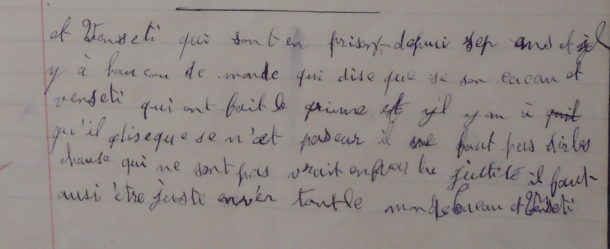 et Vansseti qui sont en prison depui sep ans et il
y à baucou de monde qui dise que se son cacau et
venseti qui ont fait le crime et y'il y an à
qu'il dise que se n'est pas eur il ne faut pas dir les
chause qui ne sont pas vrait enfoir la justise il faut
ausi être juste enver tout le monde cacau et Venseti